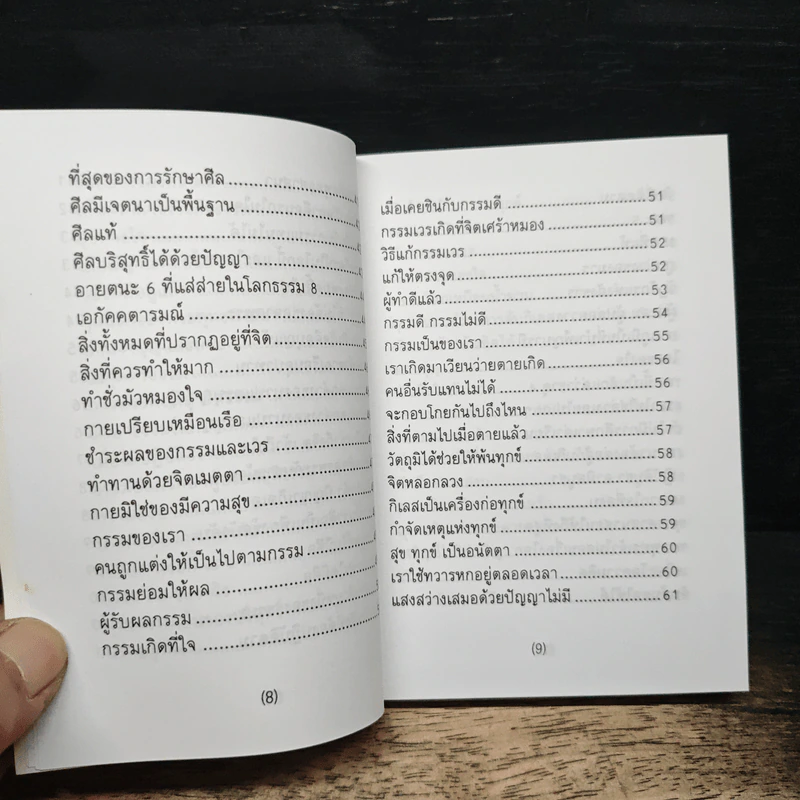 ที่สุดของการรักษาศีล
ศีลมีเจตนาเป็นพื้นฐาน
ศีลแท้
ศีลบริสุทธิ์ได้ด้วยปัญญา
อายตนะ 6 ที่แส่ส่ายในโลกธรรม 8
เอกัคคตารมณ์
สิ่งทั้งหมดที่ปรากฏอยู่ที่จิต
สิ่งที่ควรทำให้มาก
ทำชั่วมัวหมองใจ
กายเปรียบเหมือนเรือ
ชำระผลของกรรมและเวร
ทำทานด้วยจิตเมตตา
กายมิใช่ของมีความสุข
กรรมของเรา
คนถูกแต่งให้เป็นไปตามกรรม
กรรมย่อมให้ผล
ผู้รับผลกรรม
กรรมเกิดที่ใจ
(8)
เมื่อเคยชินกับกรรมดี 51
กรรมเวรเกิดที่จิตเศร้าหมอง 51
วิธีแก้กรรมเวร 52
แก้ให้ตรงจุด 52
ผู้ทำดีแล้ว 53
กรรมดี กรรมไม่ดี 54
กรรมเป็นของเรา 55
เราเกิดมาเวียนว่ายตายเกิด 56
คนอื่นรับแทนไม่ได้ 56
จะกอบโกยกันไปถึงไหน 57
สิ่งที่ตามไปเมื่อตายแล้ว 57
วัตถุมิได้ช่วยให้พ้นทุกข์ 58
จิตหลอกลวง 58
กิเลสเป็นเครื่องก่อทุกข์ 59
กำจัดเหตุแห่งทุกข์ 59
สุข ทุกข์ เป็นอนัตตา 60
เราใช้ทวารหกอยู่ตลอดเวลา 60
แสงสว่างเสมอด้วยปัญญาไม่มี 61
(9)